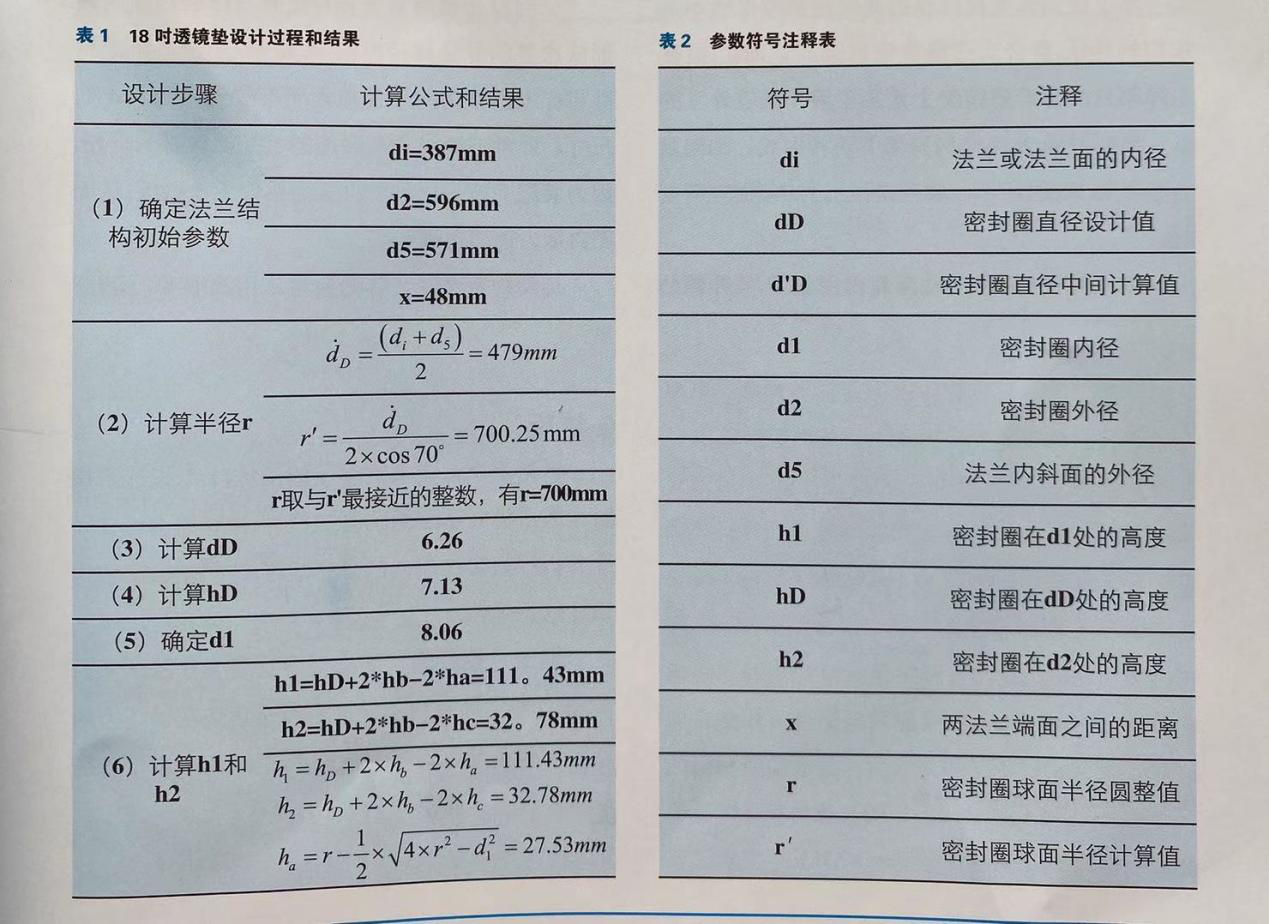 表1 18 吋透镜垫设计过程和结果
设计步骤 计算公式和结果
(1)确定法兰结
构初始参数
di=387mm
d2=596mm
d5=571mm
x=48mm
(2)计算半径r
ḋ_D = (d_i + d_5) / 2 = 479mm
r' = ḋ_D / (2×cos 70°) = 700.25 mm
r取与r'最接近的整数，有r=700mm
(3)计算dD 6.26
(4)计算hD 7.13
(5)确定d1 8.06
(6)计算h1和
h2
h1=hD+2*hb−2*ha=111。43mm
h2=hD+2*hb−2*hc=32。78mm
h_1 = h_D + 2×h_b − 2×h_a = 111.43mm
h_2 = h_D + 2×h_b − 2×h_c = 32.78mm
h_a = r − 1/2 × √(4×r² − d_1²) = 27.53mm
表2 参数符号注释表
符号 注释
di 法兰或法兰面的内径
dD 密封圈直径设计值
d'D 密封圈直径中间计算值
d1 密封圈内径
d2 密封圈外径
d5 法兰内斜面的外径
h1 密封圈在d1处的高度
hD 密封圈在dD处的高度
h2 密封圈在d2处的高度
x 两法兰端面之间的距离
r 密封圈球面半径圆整值
r′ 密封圈球面半径计算值